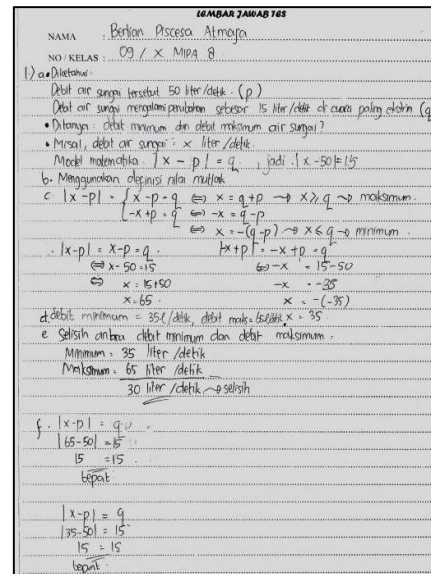 LEMBAR JAWAB TES
NAMA : Berlian Piscesa Atmaja
NO / KELAS : 09 / X MIPA 8
1) a. Diketahui :
Debit air sungai tersebut 50 liter/detik. (p)
Debit air sungai mengalami perubahan sebesar 15 liter/detik di cuaca paling ekstrim (q
• Ditanya : debit minimum dan debit maksimum air sungai?
• Misal, debit air sungai : x liter/detik.
Model matematika : |x - p| = q , jadi |x - 50| = 15
b. Menggunakan definisi nilai mutlak
c. |x - p| = { x - p = q ⇔ x = q + p → x ≥ q → maksimum.
-x + p = q ⇔ -x = q - p
⇔ x = -(q - p) → x ≤ q → minimum.
∴ |x - p| = x - p = q . |x + p| = -x + p = q
⇔ x - 50 = 15 ⇔ -x = 15 - 50
⇔ x = 15 + 50 -x = -35
x = 65 . x = -(-35)
d. debit minimum = 35 l/detik, debit maks = 65 l/detik x = 35
e selisih antara debit minimum dan debit maksimum :
Minimum : 35 liter/detik
Maksimum : 65 liter/detik
30 liter/detik → selisih
f. |x - p| = q
|65 - 50| = 15
15 = 15
tepat
|x - p| = q
|35 - 50| = 15
15 = 15
tepat